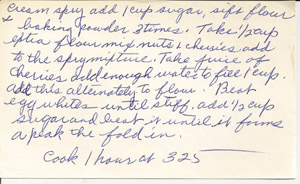 cream spry add 1 cup sugar, sift flour
& baking powder 3 times. Take 1/2 cup
extra flour mix nuts & cheries add
to the spry mixture. Take fruice of
cheries add enough water to fill 1 cup.
add this alternately to flour. Beat
egg whites until stiff, add 1/2 cup
sugar and beat it until it forms
a peak the fold in.
Cook 1 hour at 325